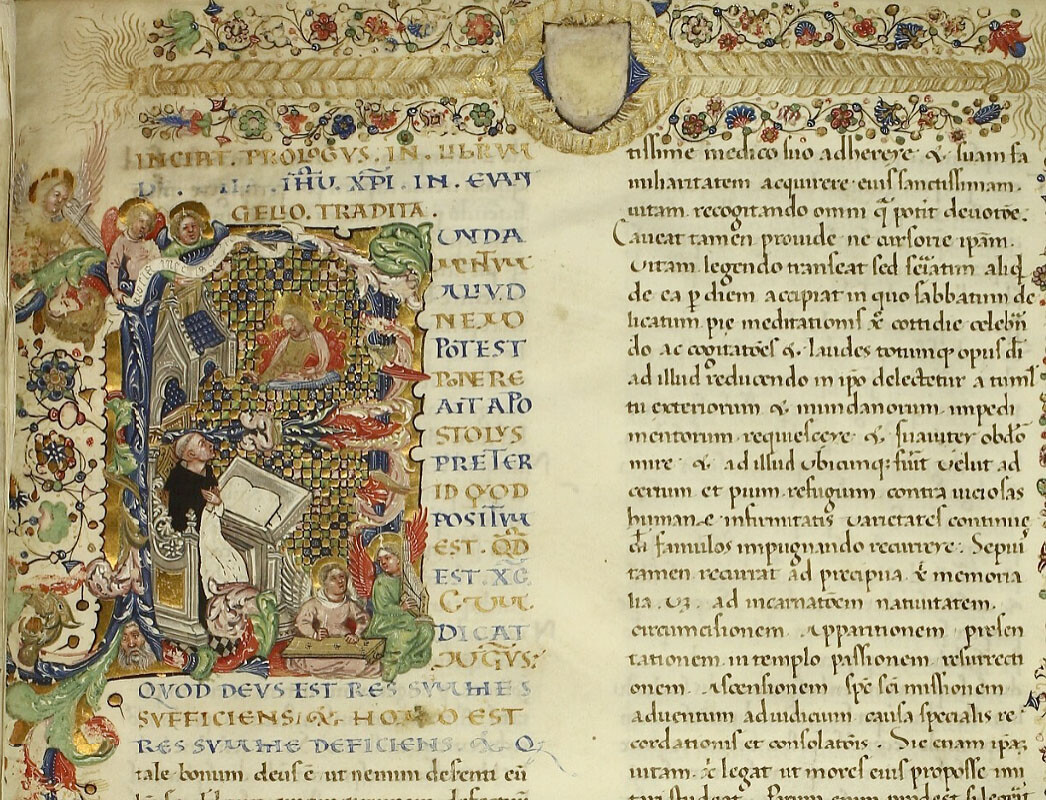 INCIPIT. PROLOGVS. IN. LIBRVM
IHU. XPI. IN. EVAN
GELIO. TRADITA.
FUNDA
MENTUM
ALIVD
NEMO
POTEST
PONERE
AIT APO
STOLVS
PRETER
ID QVOD
POSITVM
EST. QD̄
EST. XPC̄
CVM
DICAT
AVGVS:
QVOD DEVS EST RES SVMME S
SVFFICIENS. & HOMO EST
RES SVMME DEFICIENS. & Q
tale bonum deus ē ut nemini eū
tissime medico suo adherere & suam fa
miliaritatem acquirere eius sanctissimam
uitam recogitando omni q̄ potit deuotōe.
Caueat tamen prouide ne cursorie ipam̄
uitam legendo transeat sed seriatim aliq̄
de ea p diem accipiat in quo sabbatum de
licatum pie meditationis x̄ cottidie celebrā
do ac cogitatōes & laudes totumq; opus dī
ad illud reducendo in ipō delectetur a tuml
tu exteriorum & mundanorum impedi
mentorum requiescere & suauiter obdō
mire & ad illud ubicumq; fūit uelut ad
certum et pium refugium contra uiciosas
humane infirmitatis uarietates continue
dī famulos impugnando recurrere. Sepiū
tamen recurrat ad precipua x̄ memoria
lia. uz. ad incarnatōem natiuitatem.
circumcisionem Apparitionem presen
tationem in templo passionem resurrecti
onem. Ascensionem sp̄s sc̄i missionem
aduentum ad iudicium causa specialis re
cordationis et consolatōis. Sic etiam ipaz
uitam. x̄ legat ut mores eius proposse imi
tari studeat. Parum enim prodest si legerit